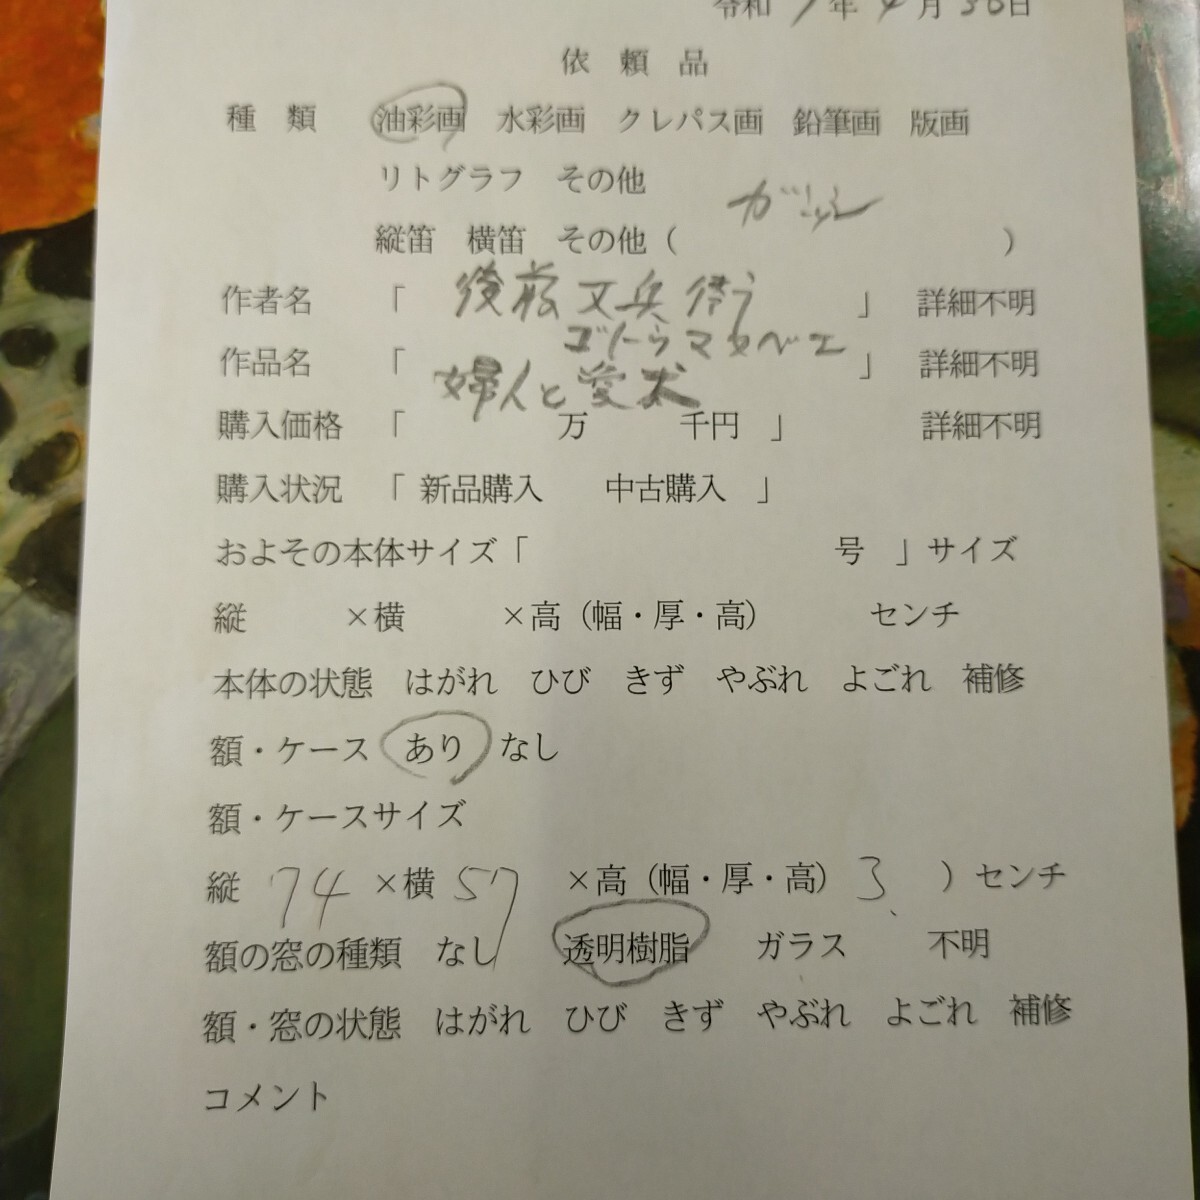 令和7年4月30日
依頼品
種類 油彩画 水彩画 クレパス画 鉛筆画 版画
リトグラフ その他
縦笛 横笛 その他( )
作者名 「 後藤又兵衛 」 詳細不明
ゴトウマタベエ
作品名 「 婦人と愛犬 」 詳細不明
購入価格 「 万 千円 」 詳細不明
購入状況 「 新品購入 中古購入 」
およその本体サイズ「 号 」サイズ
縦 ×横 ×高(幅・厚・高) センチ
本体の状態 はがれ ひび きず やぶれ よごれ 補修
額・ケース あり なし
額・ケースサイズ
縦 74 ×横 57 ×高(幅・厚・高) 3 )センチ
額の窓の種類 なし 透明樹脂 ガラス 不明
額・窓の状態 はがれ ひび きず やぶれ よごれ 補修
コメント